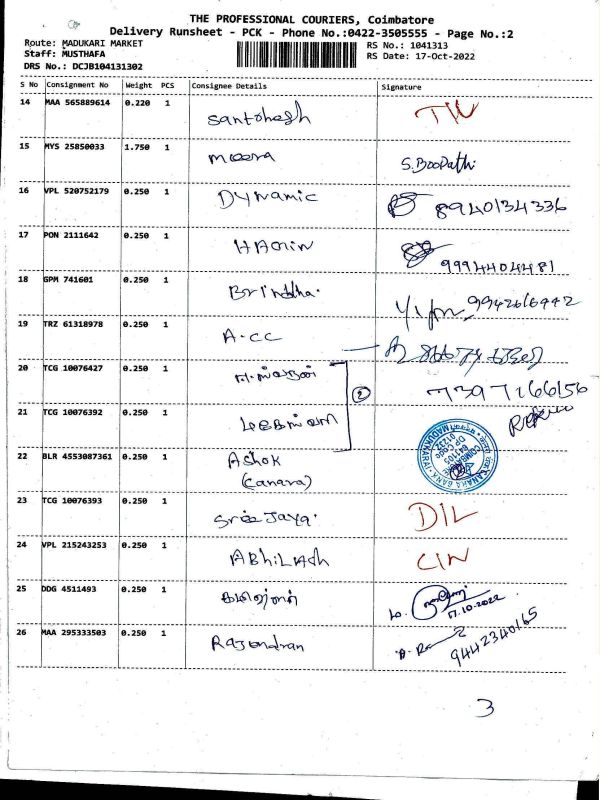 THE PROFESSIONAL COURIERS, Coimbatore
Delivery Runsheet - PCK - Phone No.:0422-3505555 - Page No.:2
Route: MADUKARI MARKET
RS No.: 1041313
Staff: MUSTHAFA
RS Date: 17-Oct-2022
DRS No.: DCJB104131302
S No Consignment No Weight PCS Consignee Details Signature
14 MAA 565889614 0.220 1 Santohesh
15 MYS 25850033 1.750 1 meera S.Boopathi
16 VPL 520752179 0.250 1 Dynamic 8940134336
17 PON 2111642 0.250 1 9994404481
18 GPM 741601 0.250 1 Brindha. 9942616442
19 TRZ 61318978 0.250 1 A.CC
20 TCG 10076427 0.250 1 2 7397166156
21 TCG 10076392 0.250 1
22 BLR 4553087361 0.250 1 Ashok
(Canara)
23 TCG 10076393 0.250 1 Sree Jaya. D/L
24 VPL 215243253 0.250 1 Abhilash C/N
25 DDG 4511493 0.250 1 17.10.2022
26 MAA 295333503 0.250 1 Rajendran 9442340165
3